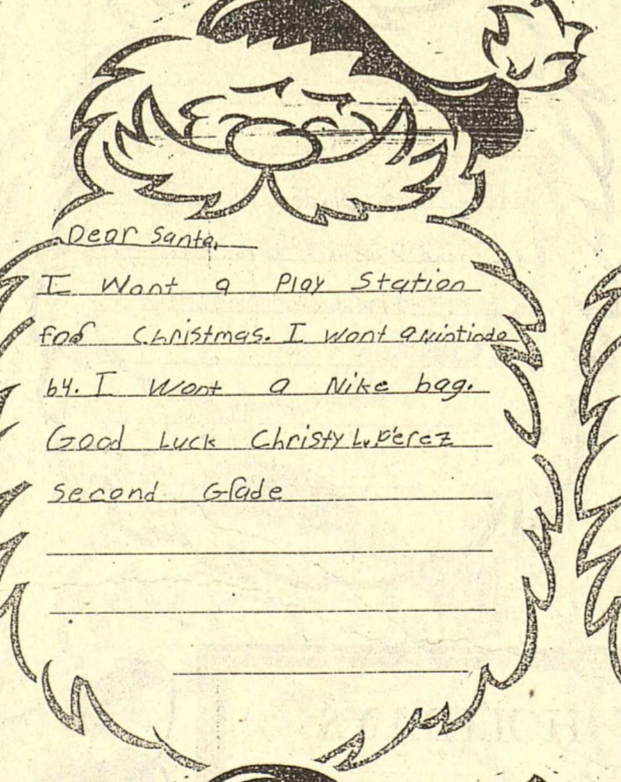 Dear Santa,
I Want a Play Station
for Christmas. I want a Nintindo
64. I Want a Nike bag.
Good Luck Christy L. Pérez
Second Grade